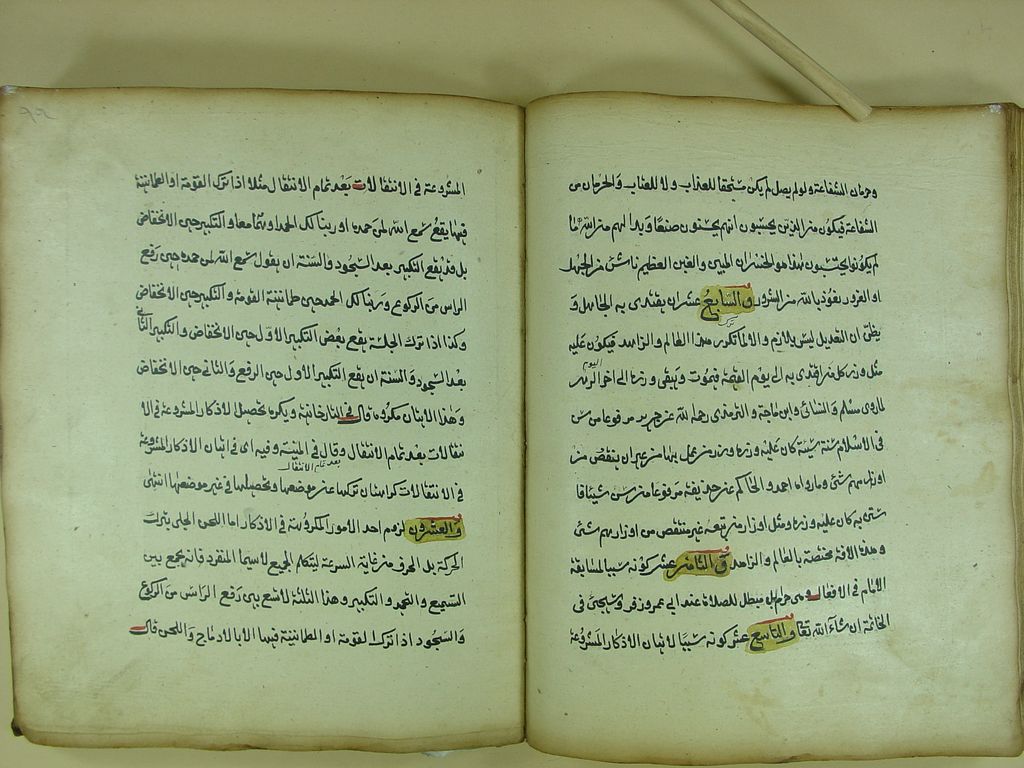 وحرمان الشفاعة ولو لم يصل لم يكن مستحقا للعذاب ولا للعتاب والحرمان من
الشفاعة فيكون من الذين يحسبون انهم يحسنون صنعا وبدا لهم من الله ما
لم يكونوا يحتسبون هذا هو الخسران المبين والغبن العظيم ناش من الجهل
او الغرور نعوذ بالله من الشرور والسابع عشر ان يقتدى به الجاهل و
يظن ان التعديل ليس بلازم والا لما تركه هذا العالم والزاهد فيكون عليه
ترك
مثل وزر كل من اقتدى به الى يوم القيمة فيموت ويبقى وزره الى اخر الدهر
اليوم
لما روى مسلم والنسائى وابن ماجة والترمذى رحمه الله عن جرير مرفوعا من سن
فى الاسلام سنة سيئة كان عليه وزره ووزر من عمل بها من غير ان ينقص من
اوزارهم شئ وما رواه احمد والحاكم عن حذيفة مرفوعا من سن شرا فا
ستن به كان عليه وزره ومثل اوزار من تبعه غير منتقص من اوزارهم شئ
وهذه الافة مختصة بالعالم والزاهد و الثامن عشر كونه سببا لمسابقة
الامام فى الافعال وهى حرام بل مبطل للصلاة عند ابى عمر وزفر وسيجئ فى
الخاتمة ان شاء الله تعا والتاسع عشر كونه سببا لاتيان الاذكار المشروعة
المشروعة فى الانتقالات بعد تمام الانتقال مثلا اذا ترك القومة او الطمانينة
فيها يقع سمع الله لمن حمده او ربنا لك الحمد او تمامها والتكبير حين الانخفاض
بل قد يقع التكبير بعد السجود والسنة ان يقول سمع الله لمن حمده حين رفع
الراس من الركوع وربنا لك الحمد حين طمانينة القومة والتكبير حين الانخفاض
وكذا اذا ترك الجلسة يقع بعض التكبير الاول حين الانخفاض والتكبير الثانى
بعد السجود والسنة ان يقع التكبير الاول حين الرفع والثانى حين الانخفاض
وهذا الاتيان مكروه قال فى التتارخانية ويكره تحصيل الاذكار المشروعة فى الا
نتقالات بعد تمام الانتقال وقال فى المنية وفيه اى فى اتيان الاذكار المشروعة
بعد تمام الانتقال
فى الانتقالات كراهتان تركها عن موضعها وتحصيلها فى غير موضعها انتهى
والعشرون لزوم احد الامور المكروهة فى الاذكار اما اللحن الجلى بترك
الحركة بل الحرف من غاية السرعة ليتكلم الجميع لا سيما المنفرد فانه يجمع بين
التسميع والتحميد والتكبير وهذا الثلثة لا تسع بين رفع الراس من الركوع
والسجود اذا ترك القومة او الطمانينة فيها الا بالادماج واللحن قال